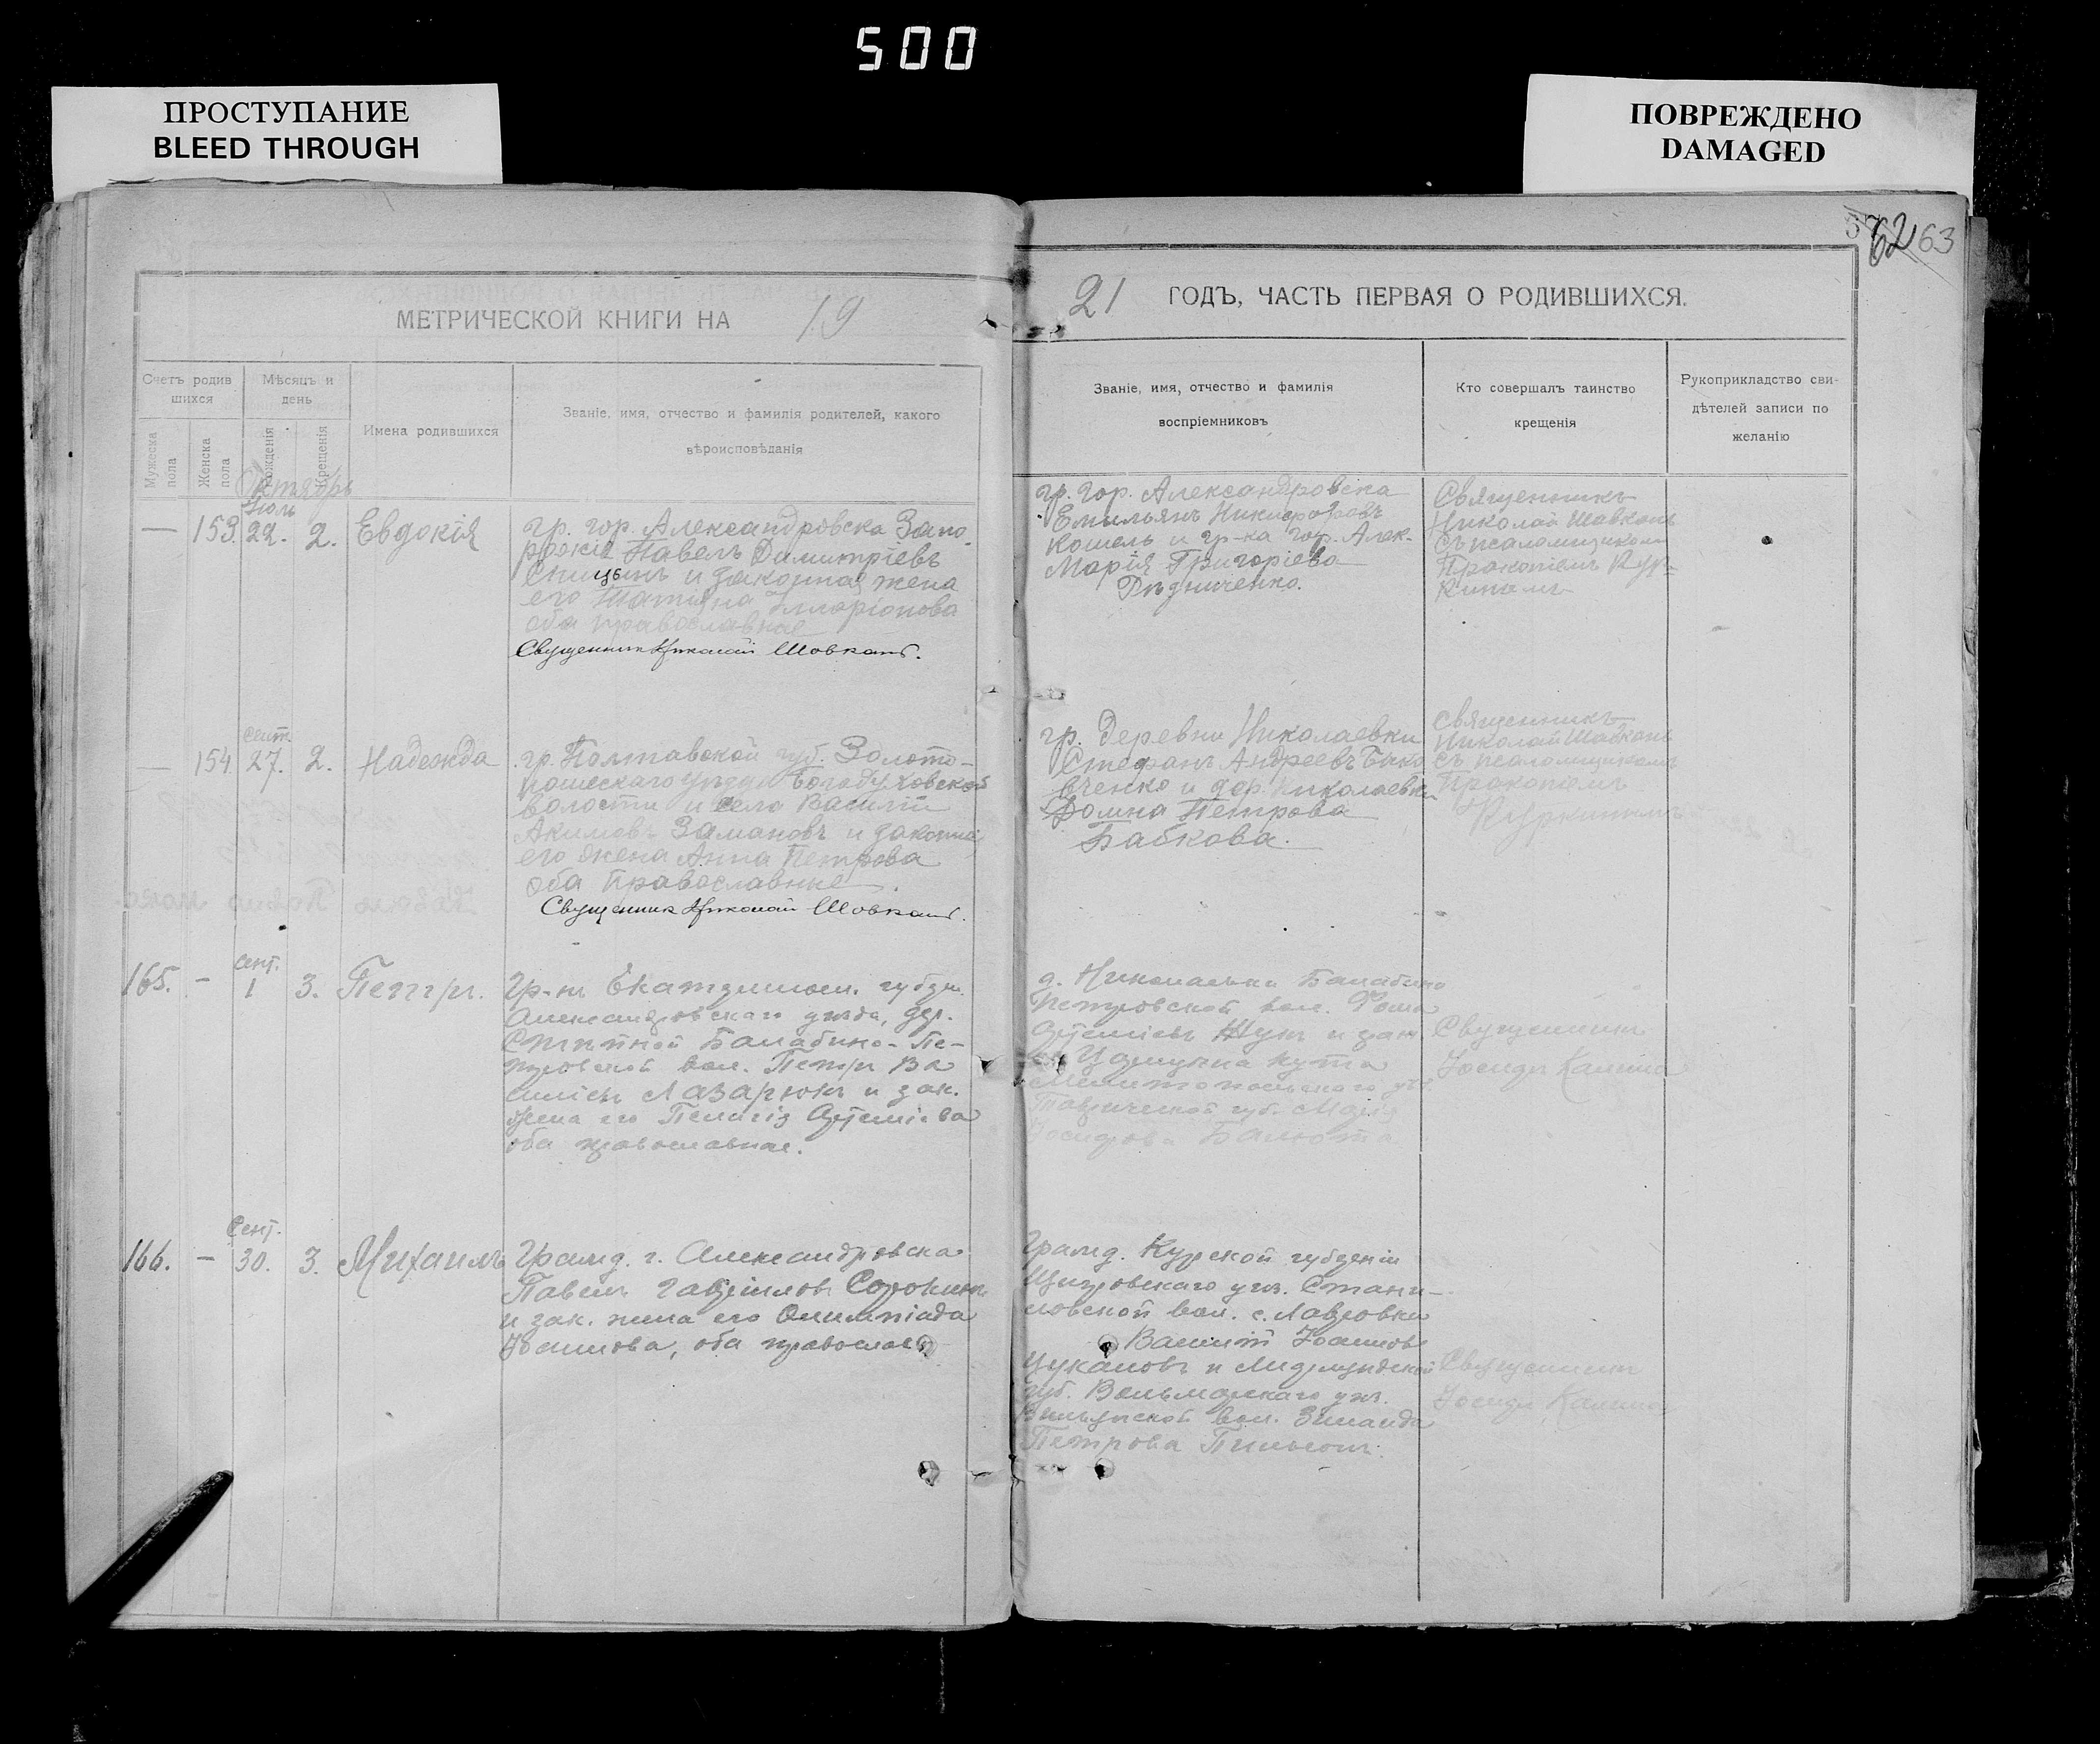 500
ПРОСТУПАНИЕ
BLEED THROUGH
ПОВРЕЖДЕНО
DAMAGED
62 63
МЕТРИЧЕСКОЙ КНИГИ НА 19
21 ГОДЪ, ЧАСТЬ ПЕРВАЯ О РОДИВШИХСЯ.
Счетъ родив
шихся
Мужеска пола
Женска пола
Мѣсяцъ и
день
Рожденія
Крещенія
Имена родившихся
Званіе, имя, отчество и фамилія родителей, какого
вѣроисповѣданія
Званіе, имя, отчество и фамилія
воспріемниковъ
Кто совершалъ таинство
крещенія
Рукоприкладство сви-
дѣтелей записи по
желанію
Октябрь
Іюль
— 153. 22. 2. Евдокія
гр. гор. Александровска Запо-
рожія Павелъ Димитріевъ
Спицынъ и законная жена
его Татіана Илларіонова
оба православные
Священник Николай Шовкапъ.
гр. гор. Александровска
Емильянъ Никифоровъ
Кошель и гр-ка гор. Алек.
Марія Григоріева
Рѣдниченко.
Священникъ
Николай Шавкапъ
съ псаломщикомъ
Прокопіемъ Кур-
кинымъ
сент.
— 154. 27. 2. Надежда
гр. Полтавской губ. Золото-
ношескаго уѣзда Богодуховской
волости и села Василій
Акимовъ Замановъ и законная
его жена Анна Петрова
оба православные.
Священник Николай Шовкапъ.
гр. Деревни Николаевки
Стефанъ Андреевъ
и дер. Николаевки
Домна Петрова
Бабкова.
Священникъ
Николай Шавкапъ
съ псаломщикомъ
Прокопіемъ
Куркинымъ
сент.
165. – 1 3. Петръ.
Гр-нъ Екатеринос. губерн.
Александровскаго уѣзда, дер.
Степной Балабино-Пе-
тровской вол. Петръ Ва
силіевъ Лазарюкъ и зак.
жена его Пелагія Артеміева
оба православные.
д. Николаевки Балабино
Петровской вол. Фома
Артеміевъ и
Мелитопольскаго уѣз.
Таврической губ. Марія
Священникъ
Іосифъ
Сент.
166. – 30. 3. Михаилъ
Гражд. г. Александровска
Павелъ Гавріиловъ Сорокинъ
и зак. жена его Олимпіада
Іоаннова, оба православ.
Гражд. Курской губерніи
Щигровскаго уѣз.
вол. с. Лавровки
Василій Іоанновъ
Цукановъ и Лифляндской
губ. Вольмарскаго уѣз.
вол. Зинаида
Петрова
Священникъ
Іосифъ